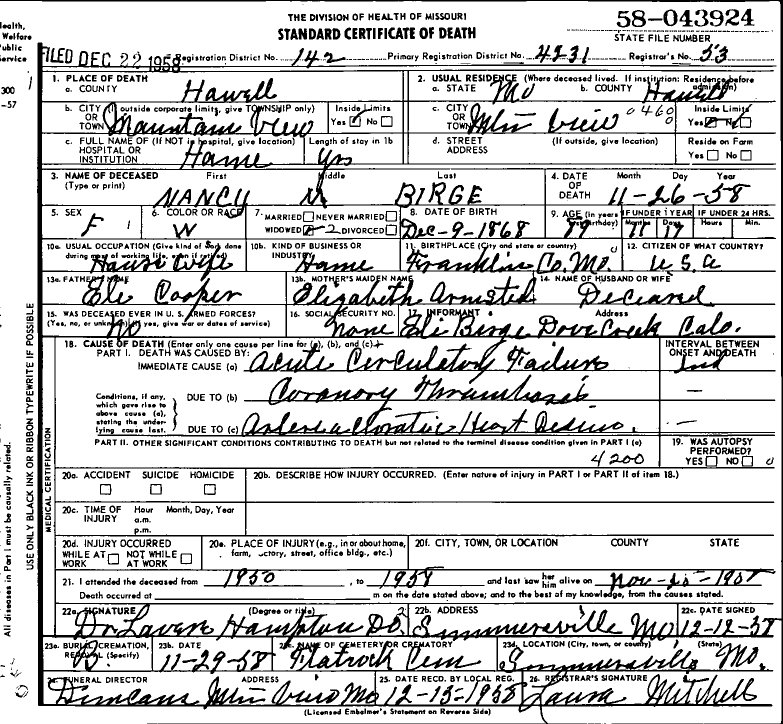 THE DIVISION OF HEALTH OF MISSOURI
STANDARD CERTIFICATE OF DEATH
58-043924
STATE FILE NUMBER
FILED DEC 22 1958 Registration District No. 142 Primary Registration District No. 4231 Registrar's No. 53
1. PLACE OF DEATH
a. COUNTY Howell
2. USUAL RESIDENCE (Where deceased lived. If institution: Residence before admission)
a. STATE Mo b. COUNTY Howell
b. CITY (If outside corporate limits, give TOWNSHIP only) OR TOWN Mountain View
Inside Limits Yes No
c. CITY OR TOWN Mtn View 0460
Inside Limits Yes No
c. FULL NAME OF (If NOT in hospital, give location) HOSPITAL OR INSTITUTION Home
Length of stay in 1b Yrs
d. STREET ADDRESS (If outside, give location)
Reside on Farm Yes No
3. NAME OF DECEASED (Type or print) First Middle Last
NANCY M BIRGE
4. DATE OF DEATH Month Day Year
11-26-58
5. SEX F
6. COLOR OR RACE W
7. MARRIED NEVER MARRIED WIDOWED DIVORCED
8. DATE OF BIRTH Dec-9-1868
9. AGE (In years last birthday) 89 IF UNDER 1 YEAR Months 11 Days 17 IF UNDER 24 HRS. Hours Min.
10a. USUAL OCCUPATION (Give kind of work done during most of working life, even if retired) House wife
10b. KIND OF BUSINESS OR INDUSTRY Home
11. BIRTHPLACE (City and state or country) Franklin Co. Mo.
12. CITIZEN OF WHAT COUNTRY? U S A
13a. FATHER'S NAME Eli Cooper
13b. MOTHER'S MAIDEN NAME Elizabeth Armsted
14. NAME OF HUSBAND OR WIFE Deceased
15. WAS DECEASED EVER IN U. S. ARMED FORCES? (Yes, no, or unknown) (If yes, give war or dates of service) No
16. SOCIAL SECURITY NO. None
17. INFORMANT Address Eli Birge Dove Creek Colo.
18. CAUSE OF DEATH (Enter only one cause per line for (a), (b), and (c).)
PART I. DEATH WAS CAUSED BY:
IMMEDIATE CAUSE (a) Acute Circulatory Failure
INTERVAL BETWEEN ONSET AND DEATH
Conditions, if any, which gave rise to above cause (a), stating the underlying cause last.
DUE TO (b) Coronary Thrombosis
DUE TO (c) Arteriosclerotic Heart
PART II. OTHER SIGNIFICANT CONDITIONS CONTRIBUTING TO DEATH but not related to the terminal disease condition given in PART I (a)
4200
19. WAS AUTOPSY PERFORMED? YES NO
20a. ACCIDENT SUICIDE HOMICIDE
20b. DESCRIBE HOW INJURY OCCURRED. (Enter nature of injury in PART I or PART II of item 18.)
20c. TIME OF INJURY Hour Month, Day, Year
a.m.
p.m.
20d. INJURY OCCURRED WHILE AT WORK NOT WHILE AT WORK
20e. PLACE OF INJURY (e.g., in or about home, farm, factory, street, office bldg., etc.)
20f. CITY, TOWN, OR LOCATION COUNTY STATE
21. I attended the deceased from 1950, to 1958 and last saw her him alive on
Death occurred at m on the date stated above; and to the best of my knowledge, from the causes stated.
22a. SIGNATURE (Degree or title) Dr Lavern Hampton DO.
22b. ADDRESS Summersville Mo
22c. DATE SIGNED 12-12-58
23a. BURIAL, CREMATION, REMOVAL (Specify) B.
23b. DATE 11-29-58
23c. NAME OF CEMETERY OR CREMATORY Flatrock Cem
23d. LOCATION (City, town, or county) (State) Summersville Mo.
24. FUNERAL DIRECTOR ADDRESS Duncans Mtn View Mo
25. DATE RECD. BY LOCAL REG. 12-15-1958
26. REGISTRAR'S SIGNATURE Laura Mitchell
(Licensed Embalmer's Statement on Reverse Side)
USE ONLY BLACK INK OR RIBBON TYPEWRITE IF POSSIBLE
MEDICAL CERTIFICATION
All diseases in Part I must be causally related.
Health,
Welfare
Public
Service
300
-57